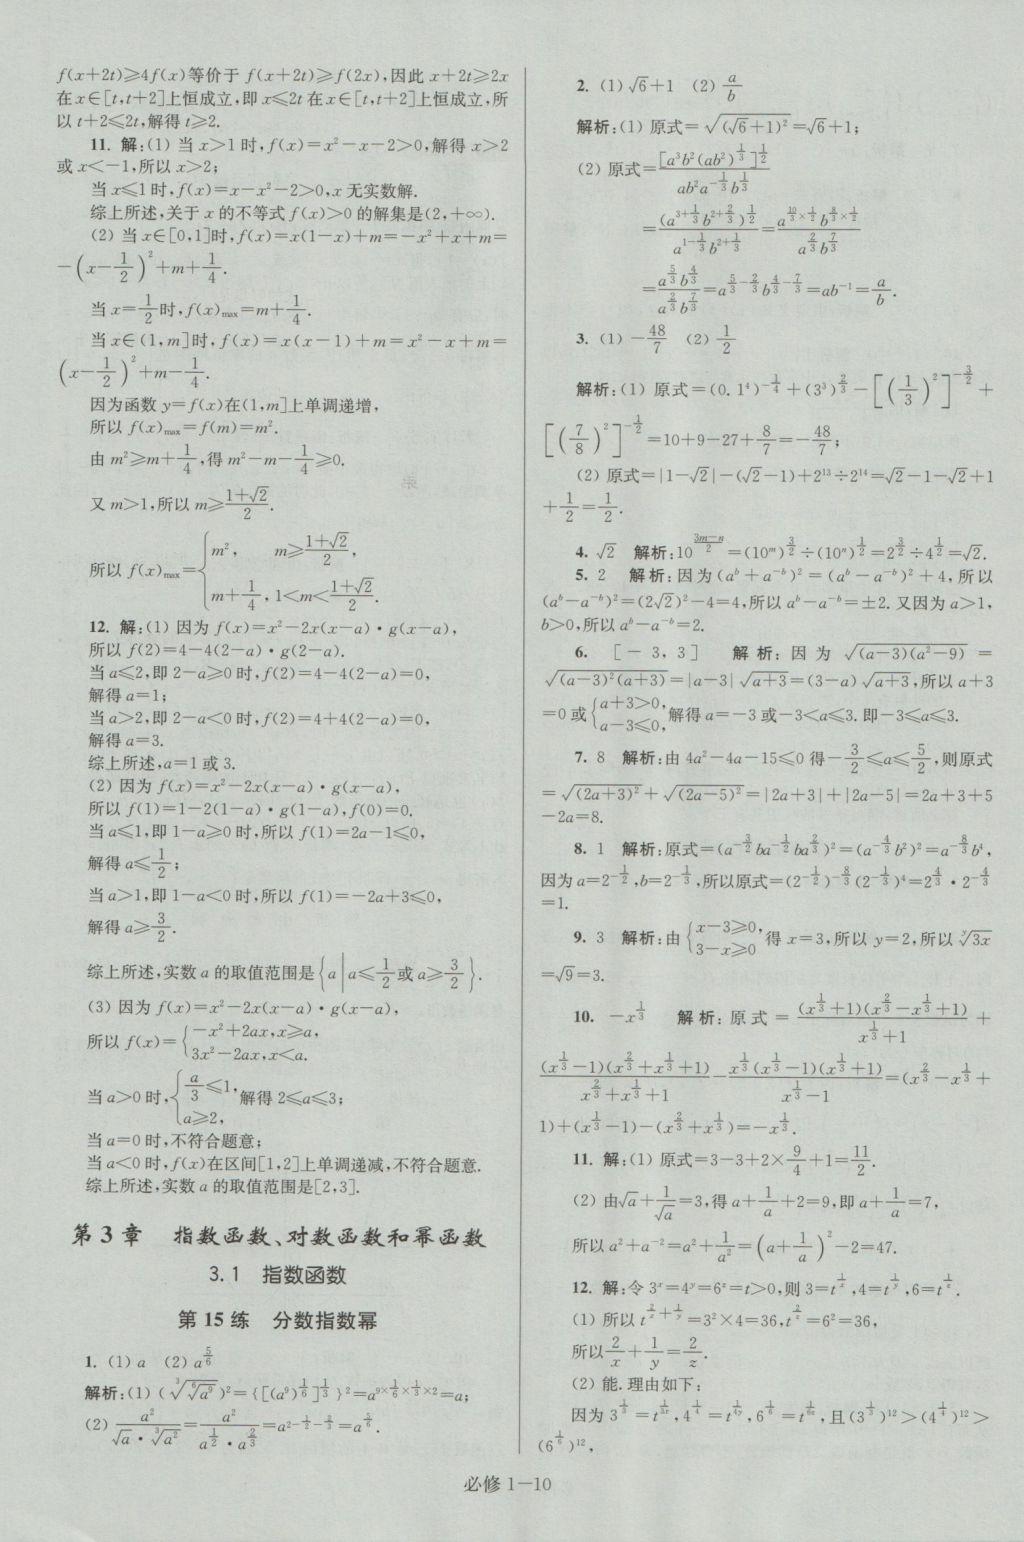 f(x+2t)≥4f(x)等价于 f(x+2t)≥f(2x),因此 x+2t≥2x
在 x∈[t,t+2]上恒成立,即 x≤2t 在 x∈[t,t+2]上恒成立,所
以 t+2≤2t,解得 t≥2.
11. 解:(1) 当 x>1 时,f(x)=x²-x-2>0,解得 x>2
或 x<-1,所以 x>2;
当 x≤1 时,f(x)=x-x²-2>0,x 无实数解.
综上所述,关于 x 的不等式 f(x)>0 的解集是(2,+∞).
(2) 当 x∈[0,1]时,f(x)=x(1-x)+m=-x²+x+m=
-(x-1/2)²+m+1/4.
当 x=1/2时,f(x)max=m+1/4.
当 x∈(1,m]时,f(x)=x(x-1)+m=x²-x+m=
(x-1/2)²+m-1/4.
因为函数 y=f(x)在(1,m]上单调递增,
所以 f(x)max=f(m)=m².
由 m²≥m+1/4,得 m²-m-1/4≥0.
又 m>1,所以 m≥(1+√2)/2.
所以 f(x)max={m², m≥(1+√2)/2,
m+1/4, 1<m<(1+√2)/2.
12. 解:(1) 因为 f(x)=x²-2x(x-a)·g(x-a),
所以 f(2)=4-4(2-a)·g(2-a).
当 a≤2,即 2-a≥0 时,f(2)=4-4(2-a)=0,
解得 a=1;
当 a>2,即 2-a<0 时,f(2)=4+4(2-a)=0,
解得 a=3.
综上所述,a=1 或 3.
(2) 因为 f(x)=x²-2x(x-a)·g(x-a),
所以 f(1)=1-2(1-a)·g(1-a),f(0)=0.
当 a≤1,即 1-a≥0 时,所以 f(1)=2a-1≤0,
解得 a≤1/2;
当 a>1,即 1-a<0 时,所以 f(1)=-2a+3≤0,
解得 a≥3/2.
综上所述,实数 a 的取值范围是{a|a≤1/2或 a≥3/2}.
(3) 因为 f(x)=x²-2x(x-a)·g(x-a),
所以 f(x)={-x²+2ax,x≥a,
3x²-2ax,x<a.
当 a>0 时,{a/3≤1,
a≥2, 解得 2≤a≤3;
当 a=0 时,不符合题意;
当 a<0 时,f(x)在区间[1,2]上单调递减,不符合题意.
综上所述,实数 a 的取值范围是[2,3].
第 3 章 指数函数、对数函数和幂函数
3.1 指数函数
第 15 练 分数指数幂
1. (1) a (2) a^(5/6)
解析:(1) (∛(⁶√(a⁹)))²={[(a⁹)^(1/6)]^(1/3)}²=a^(9×1/6×1/3×2)=a;
(2) a²/(√a·∛(a²))=a²/(a^(1/2)·a^(2/3))=a^(2-1/2-2/3)=a^(5/6).
2. (1) √6+1 (2) a/b
解析:(1) 原式=√((√6+1)²)=√6+1;
(2) 原式=[a³b²(ab²)^(1/3)]^(1/2)/(ab²a^(-1/3)b^(1/3))
=(a^(3+1/3)b^(2+2/3))^(1/2)/(a^(1-1/3)b^(2+1/3))=a^(10/3×1/2)b^(8/3×1/2)/(a^(2/3)b^(7/3))
=a^(5/3)b^(4/3)/(a^(2/3)b^(7/3))=a^(5/3-2/3)b^(4/3-7/3)=ab⁻¹=a/b.
3. (1) -48/7 (2) 1/2
解析:(1) 原式=(0.1⁴)^(-1/4)+(3³)^(2/3)-[(1/3)²]^(-3/2)+
[(7/8)²]^(-1/2)=10+9-27+8/7=-48/7;
(2) 原式=|1-√2|-(√2-1)+2¹³÷2¹⁴=√2-1-√2+1
+1/2=1/2.
4. √2 解析:10^((3m-n)/2)=(10^m)^(3/2)÷(10^n)^(1/2)=2^(3/2)÷4^(1/2)=√2.
5. 2 解析:因为(a^b+a^(-b))²=(a^b-a^(-b))²+4,所以
(a^b-a^(-b))²=(2√2)²-4=4,所以 a^b-a^(-b)=±2. 又因为 a>1,
b>0,所以 a^b-a^(-b)=2.
6. [-3,3] 解析:因为 √((a-3)(a²-9))=
√((a-3)²(a+3))=|a-3|√(a+3)=(3-a)√(a+3),所以 a+3
=0 或{a+3>0,
a-3≤0,解得 a=-3 或-3<a≤3. 即-3≤a≤3.
7. 8 解析:由 4a²-4a-15≤0 得-3/2≤a≤5/2,则原式
=√((2a+3)²)+√((2a-5)²)=|2a+3|+|2a-5|=2a+3+5
-2a=8.
8. 1 解析:原式=(a^(-3/2)ba^(-1/2)ba^(2/3))²=(a^(-4/3)b²)²=a^(-8/3)b⁴,
因为 a=2^(-1/2),b=2^(-1/3),所以原式=(2^(-1/2))^(-8/3)(2^(-1/3))⁴=2^(4/3)·2^(-4/3)
=1.
9. 3 解析:由{x-3≥0,
3-x≥0 得 x=3,所以 y=2,所以 ʸ√(3x)
=√9=3.
10. -x^(1/3) 解析:原式=(x^(1/3)+1)(x^(2/3)-x^(1/3)+1)/(x^(1/3)+1)+
(x^(1/3)-1)(x^(2/3)+x^(1/3)+1)/(x^(2/3)+x^(1/3)+1)-x^(1/3)(x^(1/3)-1)(x^(1/3)+1)/(x^(1/3)-1)=(x^(2/3)-x^(1/3)+
1)+(x^(1/3)-1)-(x^(2/3)+x^(1/3))=-x^(1/3).
11. 解:(1) 原式=3-3+2×9/4+1=11/2.
(2) 由√a+1/√a=3,得 a+1/a+2=9,即 a+1/a=7,
所以 a²+a⁻²=a²+1/a²=(a+1/a)²-2=47.
12. 解:令 3^x=4^y=6^z=t>0,则 3=t^(1/x),4=t^(1/y),6=t^(1/z).
(1) 所以 t^(2/x+1/y)=3²×4=36,t^(2/z)=6²=36,
所以2/x+1/y=2/z.
(2) 能. 理由如下:
因为 3^(1/3)=t^(1/3x),4^(1/4)=t^(1/4y),6^(1/6)=t^(1/6z),且(3^(1/3))¹²>(4^(1/4))¹²>
(6^(1/6))¹²,
必修 1—10